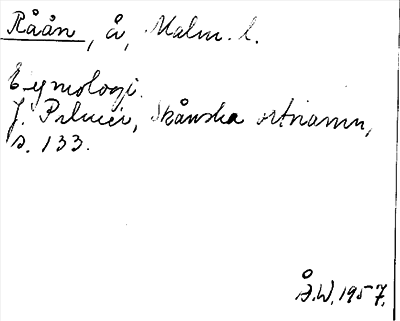 Råån, å, Malm. l.
Etymologi.
J. Palmér, Skånska ortnamn,
s. 133.
Å.W. 1957.